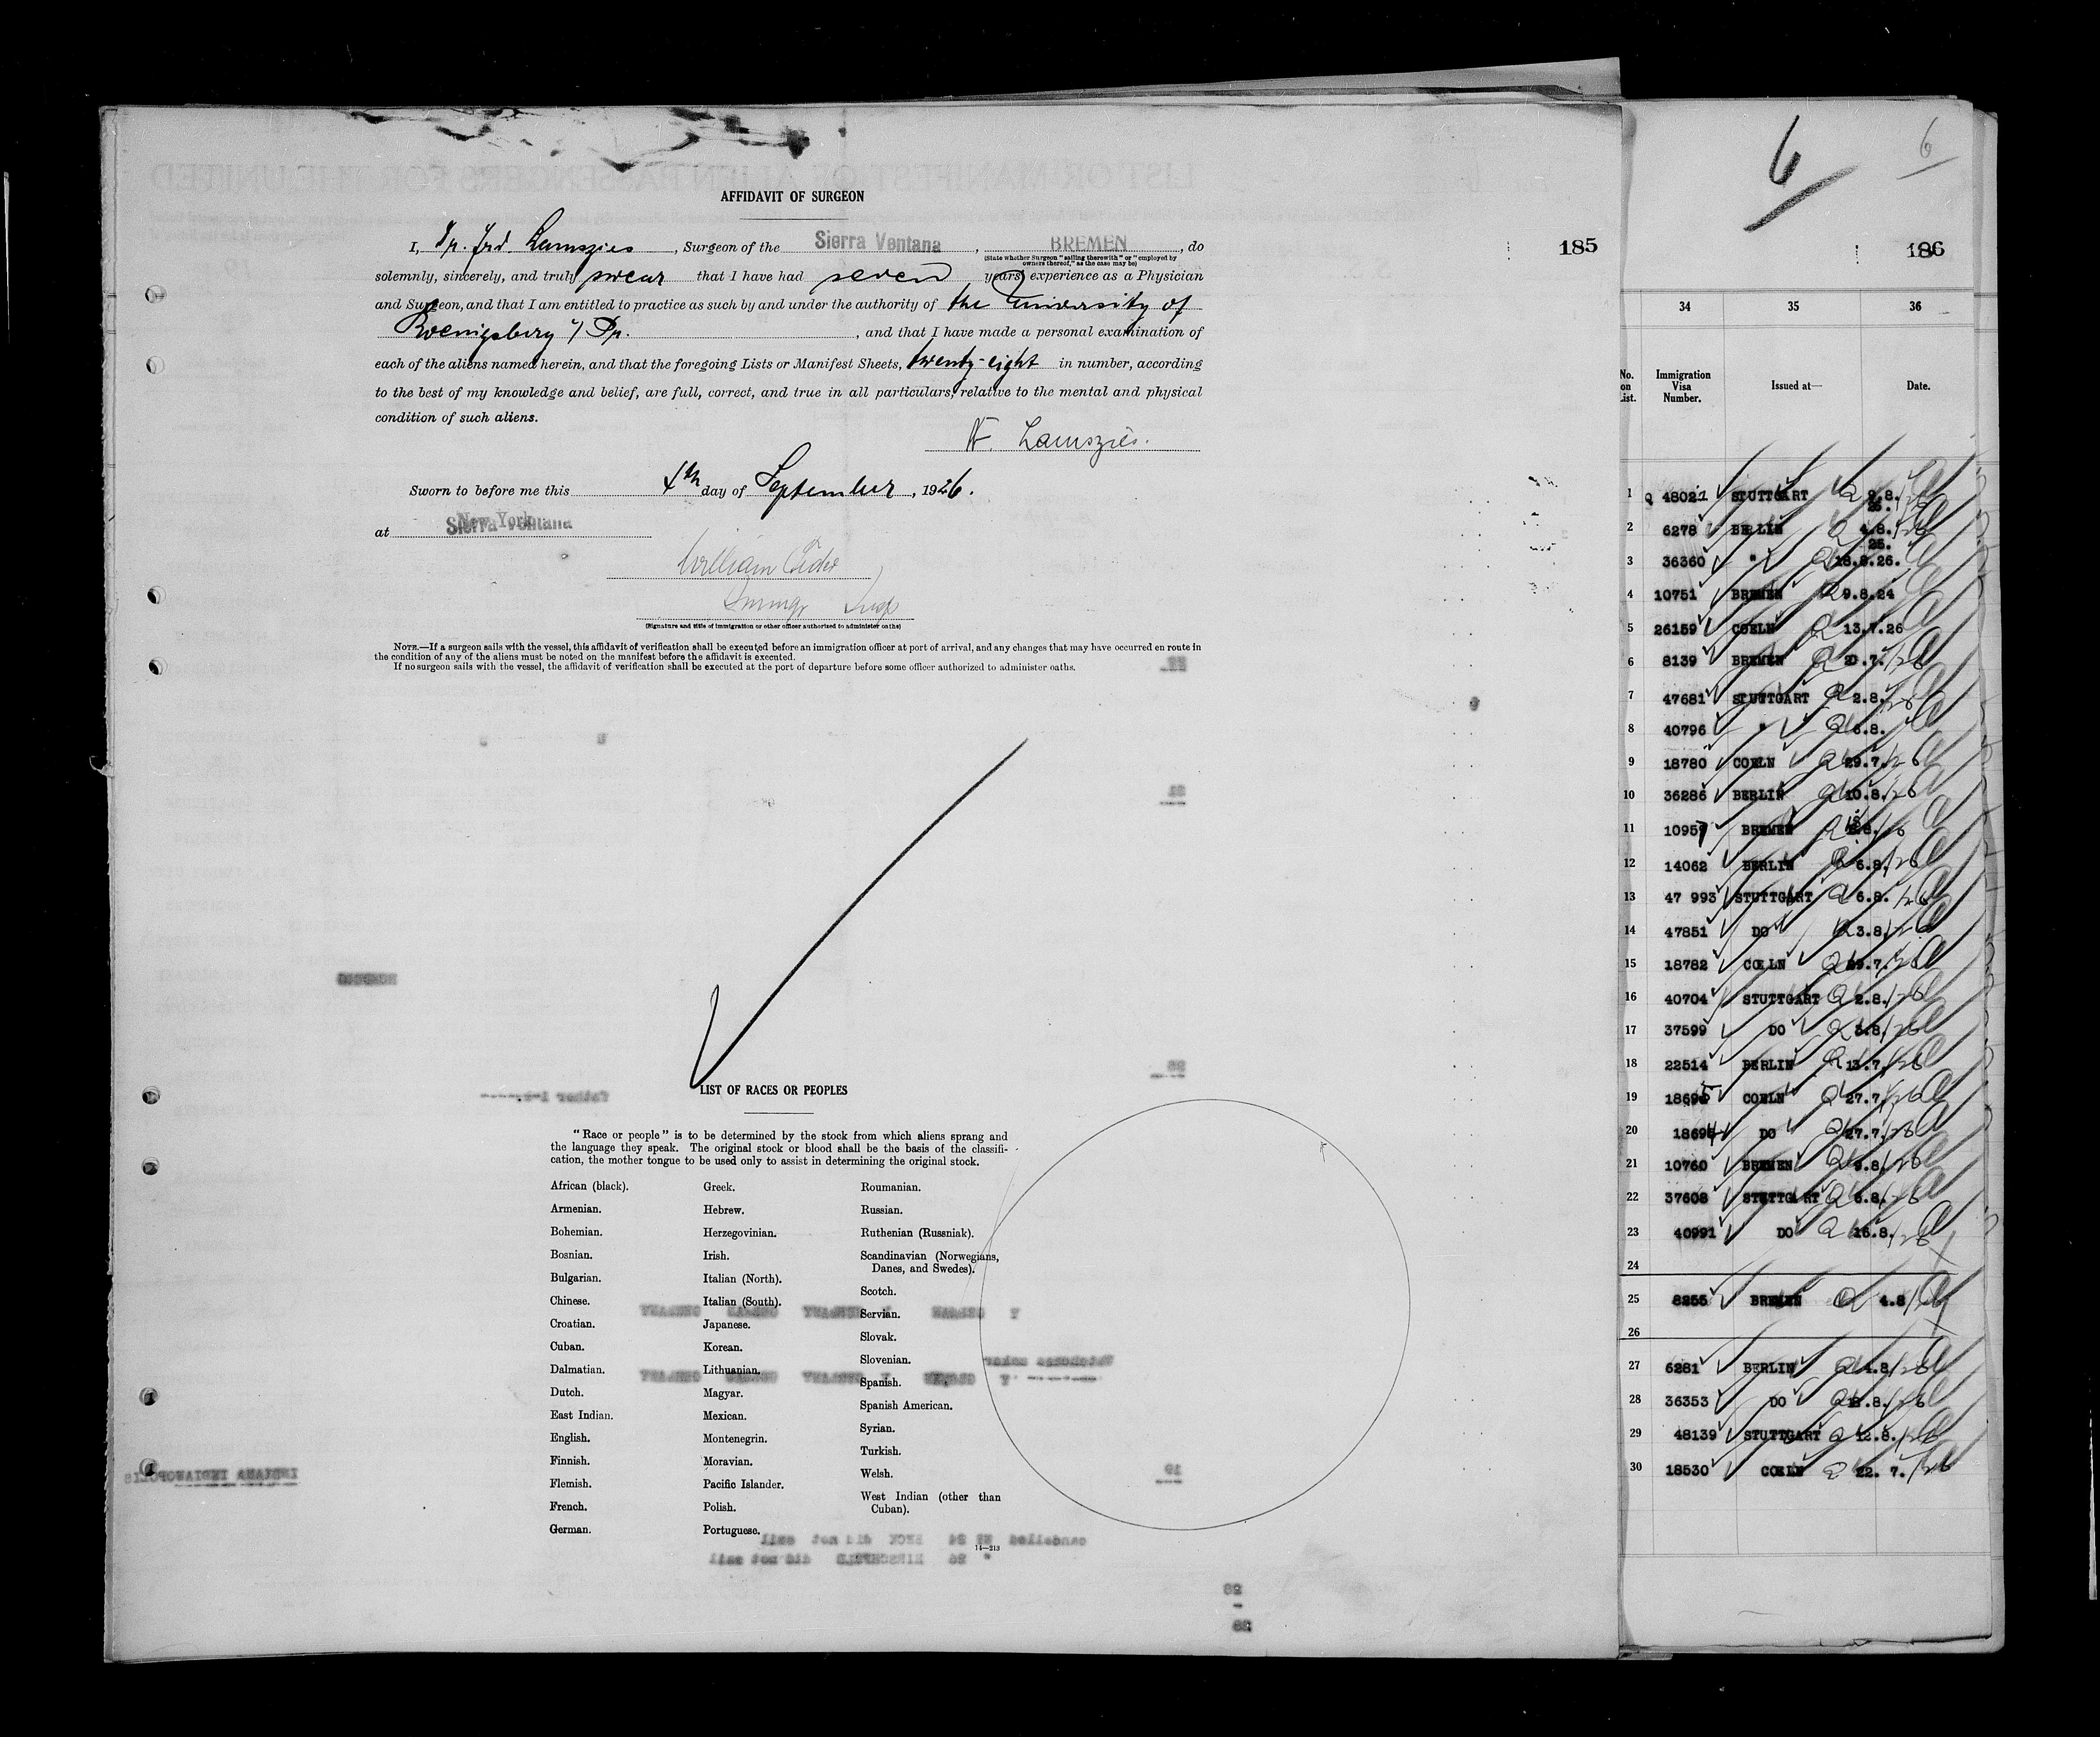 AFFIDAVIT OF SURGEON
I, Dr. Frd. Lamszies, Surgeon of the Sierra Ventana, BREMEN, do
(State whether Surgeon "sailing therewith" or "employed by
owners thereof," as the case may be)
solemnly, sincerely, and truly swear that I have had seven years' experience as a Physician
and Surgeon, and that I am entitled to practice as such by and under the authority of the University of
Koenigsberg i/ Pr., and that I have made a personal examination of
each of the aliens named herein, and that the foregoing Lists or Manifest Sheets, twenty-eight in number, according
to the best of my knowledge and belief, are full, correct, and true in all particulars, relative to the mental and physical
condition of such aliens.
F. Lamszies.
Sworn to before me this 4th day of September, 1926.
at Sierra Ventana New York
William
Immgr Insp
(Signature and title of immigration or other officer authorized to administer oaths)
NOTE.—If a surgeon sails with the vessel, this affidavit of verification shall be executed before an immigration officer at port of arrival, and any changes that may have occurred en route in
the condition of any of the aliens must be noted on the manifest before the affidavit is executed.
If no surgeon sails with the vessel, the affidavit of verification shall be executed at the port of departure before some officer authorized to administer oaths.
LIST OF RACES OR PEOPLES
"Race or people" is to be determined by the stock from which aliens sprang and
the language they speak. The original stock or blood shall be the basis of the classifi-
cation, the mother tongue to be used only to assist in determining the original stock.
African (black).
Armenian.
Bohemian.
Bosnian.
Bulgarian.
Chinese.
Croatian.
Cuban.
Dalmatian.
Dutch.
East Indian.
English.
Finnish.
Flemish.
French.
German.
Greek.
Hebrew.
Herzegovinian.
Irish.
Italian (North).
Italian (South).
Japanese.
Korean.
Lithuanian.
Magyar.
Mexican.
Montenegrin.
Moravian.
Pacific Islander.
Polish.
Portuguese.
Roumanian.
Russian.
Ruthenian (Russniak).
Scandinavian (Norwegians,
Danes, and Swedes).
Scotch.
Servian.
Slovak.
Slovenian.
Spanish.
Spanish American.
Syrian.
Turkish.
Welsh.
West Indian (other than
Cuban).
14—213
185
6
6
186
34 35 36
No. on List. Immigration Visa Number. Issued at— Date.
1 48021 STUTTGART 9.8./26
2 6278 BERLIN 4.8./26
3 36360 " 18.8.26.
4 10751 BREMEN 9.8.24
5 26159 COELN 13.7.26
6 8139 BREMEN 20.7./26
7 47681 STUTTGART 2.8./26
8 40796 " 6.8.
9 18780 COELN 29.7./26
10 36286 BERLIN 10.8./26
11 10957 BREMEN
12 14062 BERLIN 6.8./26
13 47 993 STUTTGART 6.8./26
14 47851 DO 3.8./26
15 18782 COELN 29.7./26
16 40704 STUTTGART 2.8./26
17 37599 DO 3.8./26
18 22514 BERLIN 13.7./26
19 18695 COELN 27.7./26
20 18694 DO 27.7./26
21 10760 BREMEN 9.8./26
22 37608 STUTTGART 6.8./26
23 40991 DO 16.8./26
24
25 8255 BREMEN 4.8/
26
27 6281 BERLIN 4.8/26
28 36353 DO 18.8./26
29 48139 STUTTGART 12.8./26
30 18530 COELN 22. 7./26